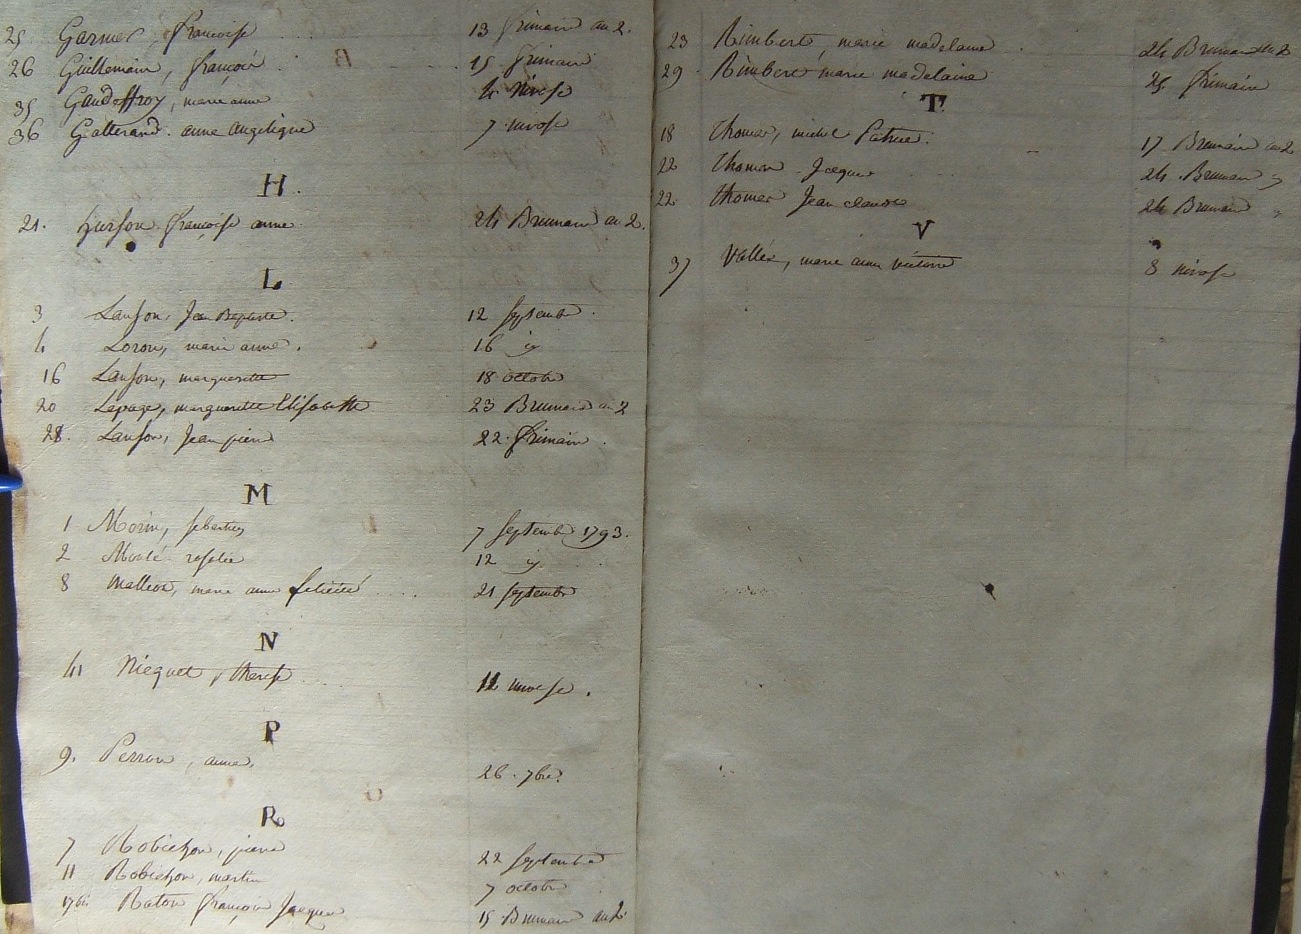 25 Garnier, françoise 13 frimaire an 2.
26 Guillemain, françois 15 frimaire
35 Gaudeffroy, marie anne 4 Nivose
36 Gatterand. anne angelique 7 nivose
H.
21. hurson françoise anne 24 Brumaire an 2.
L
3 Lanson, Jean Baptiste. 12 septembre.
4 Loron, marie anne. 16
16 Lanson, marguerite 18 octobre
20 Lepage, marguerite Elisabeth 23 Brumaire an 2
28. Lanson, Jean pierre 22. frimaire.
M
1 Morin, sebastien 7 septembre 1793.
2 rosalie 12
8 Malleot, marie anne felicité 21 septembre
N
41 Niequet, therese 11 nivose.
P
9. Perron, anne, 26. 7bre.
R
7 Robichon, pierre 22 septembre
11 Robichon, martin 7 octobre
17bis Raton françois Jacques 15 Brumaire an 2.
23 Rimbert, marie madelaine 24 Brumaire an 2
29. Rimbert marie madelaine 25 frimaire
T
18 Thomas, michel Patrice. 17 Brumaire an 2
22 Thomas Jacques 24. Brumaire
22. Thomas Jean claude 24 Brumaire
V
37 Vallée, marie anne victoire 8 nivose